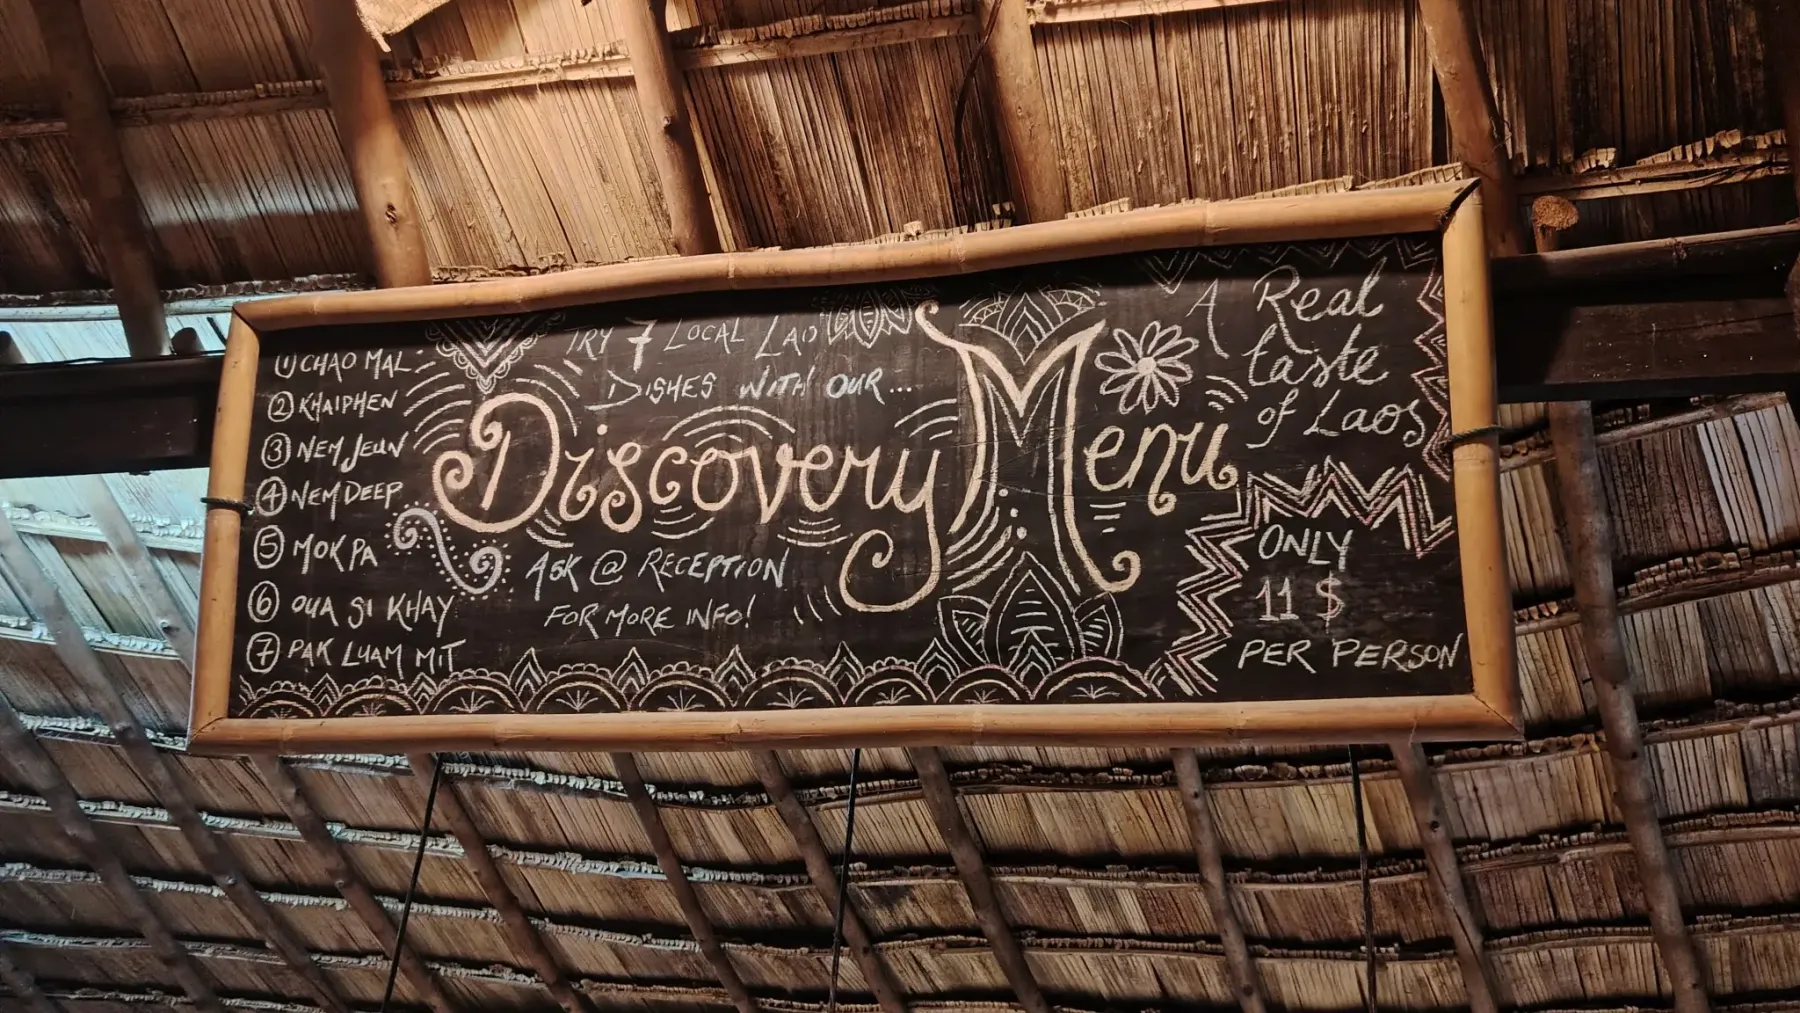 ① CHAO MAL
② KHAIPHEN
③ NEM JEUN
④ NEM DEEP
⑤ MOK PA
⑥ OUA SI KHAY
⑦ PAK LUAM MIT
TRY 7 LOCAL LAO
DISHES WITH OUR...
Discovery Menu
ASK @ RECEPTION
FOR MORE INFO!
A Real
taste
of Laos
ONLY
11 $
PER PERSON